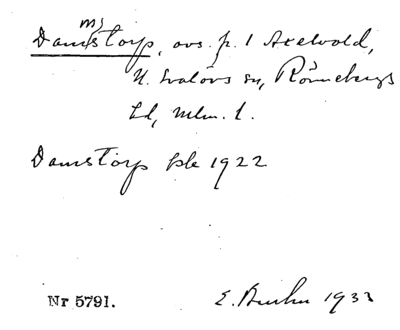 ms
Damstorp, avs. p. 1 Axelvold,
N. Svalövs sn, Rönnebergs
hd, Mlm. l.
Damstorp 1922
Nr 5791. E. 1933